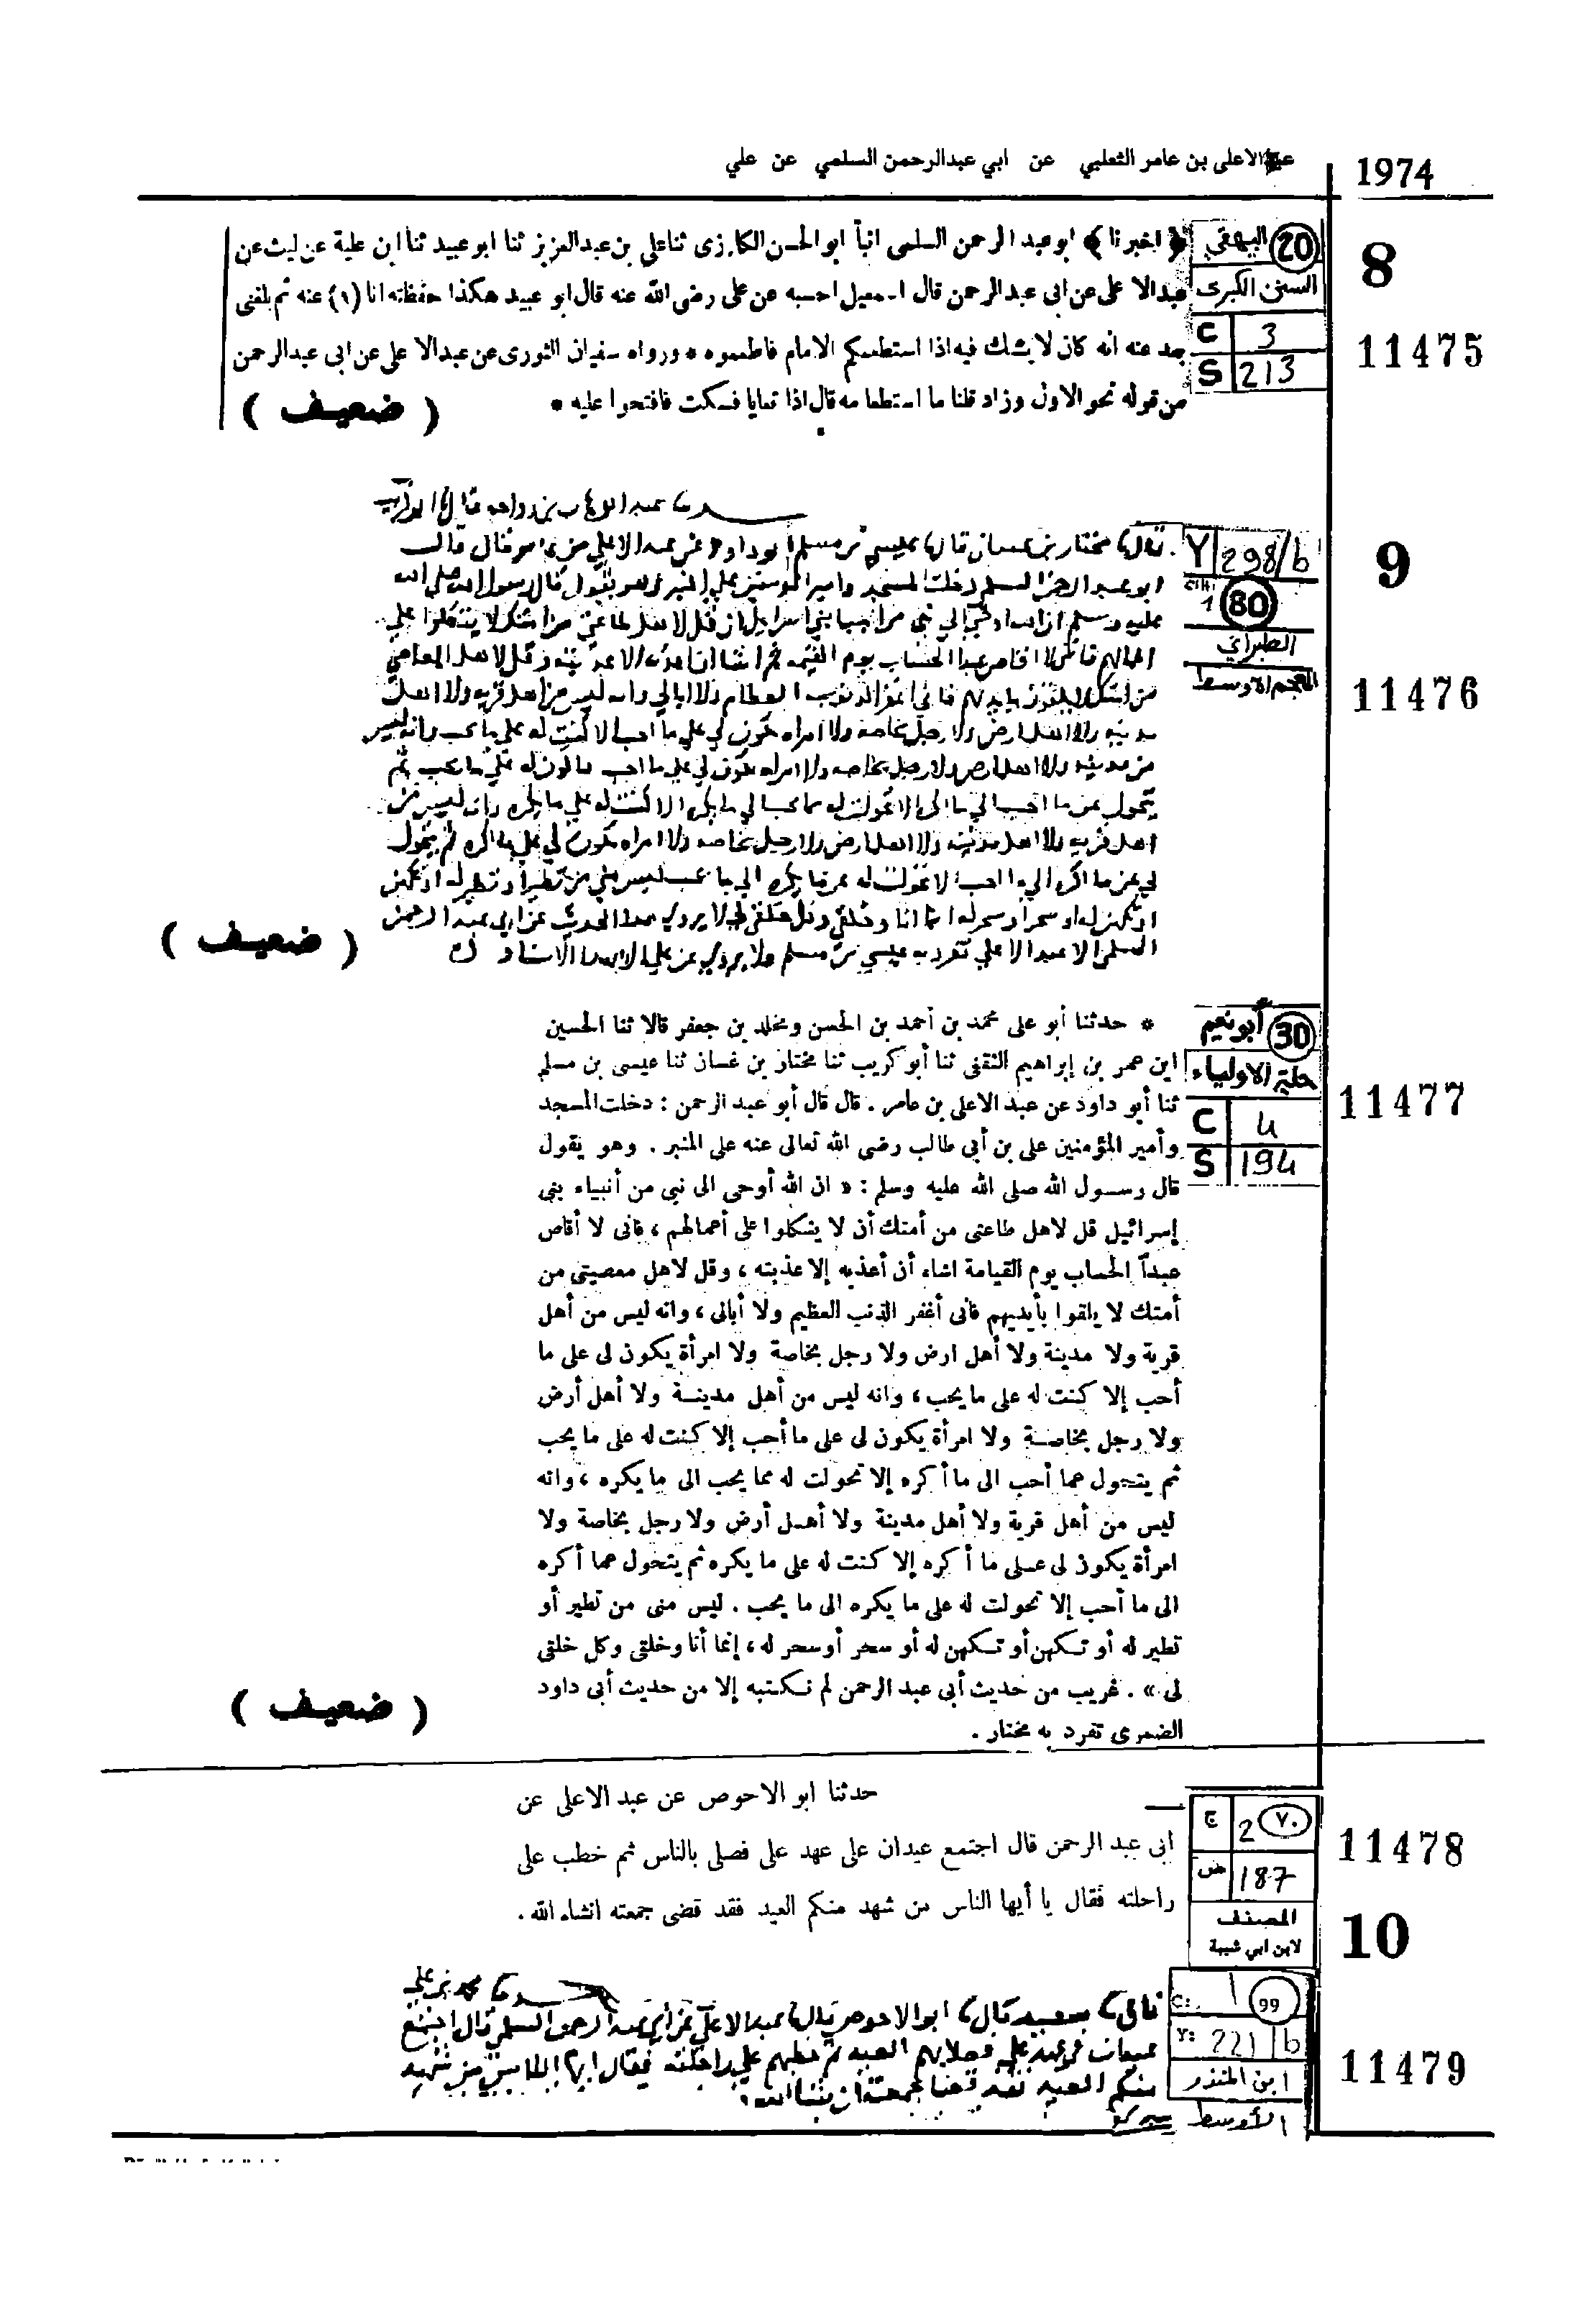 1974
عبدالاعلى بن عامر الثعلبي عن ابي عبدالرحمن السلمي عن علي
8
11475
20 البيهقي
السنن الكبرى
C 3
S 213
﴿ اخبرنا ﴾ ابوعبد الرحمن السلمى انبأ ابو الحسن الكارزى ثنا على بن عبدالعزيز ثنا ابو عبيد ثنا ابن علية عن ليث عن
عبدالاعلى عن ابى عبدالرحمن قال اسمعيل احسبه عن على رضى الله عنه قال ابو عبيد هكذا حفظته انا (١) عنه ثم بلغنى
بعد عنه انه كان لا يشك فيه اذا استطعمكم الامام فاطعموه * ورواه سفيان الثورى عن عبدالاعلى عن ابى عبدالرحمن
من قوله نحو الاول وزاد قلنا ما استطعامه قال اذا تعايا فسكت فافتحوا عليه *
( ضعيف )
9
11476
Y 298/b
1 80
الطبراني
المعجم الاوسط
عبد الوهاب بن رواحه قال ابو كريب
قال مختار بن غسان قال عيسى بن مسلم ابو داود عن عبد الاعلى بن عامر قال قال
ابو عبد الرحمن السلمي دخلت المسجد وامير المومنين علي المنبر وهو يقول قال رسول الله صلي الله
عليه وسلم ان الله اوحي الي نبي من انبيا بني اسراييل ان قل لاهل طاعتي من امتك لا يتكلوا علي
اعمالهم فاني لا اقاص عبدا الحساب يوم القيمه
ولا اهل ارض ولا رجل بخاصه ولا امراه تكون لي علي ما احب الا كنت له علي ما يحب وانه ليس
من مدينه ولا اهل ارض ولا رجل بخاصه ولا امراه تكون لي علي ما احب فاكون له علي ما يحب ثم
يتحول عن ما احب الي ما اكره الا تحولت له مما يحب الي ما يكره الا كنت له علي ما يكره وانه ليس من
اهل قريه ولا اهل مدينه ولا اهل ارض ولا رجل بخاصه ولا امراه تكون لي علي ما اكره ثم يتحول
لي عن ما اكره الي ما احب الا تحولت له مما يكره الي ما يحب ليس مني من تطير او تطير له او تكهن
او تكهن له او سحر او سحر له انما انا وخلقي وكل خلقي لي لا يروي هذا الحديث عن ابي عبد الرحمن
السلمي الا عبد الاعلي تفرد به عيسي بن مسلم ولا يروي عن علي الا بهذا الاسناد
( ضعيف )
11477
30 أبو نعيم
حلية الاولياء
C 4
S 194
* حدثنا أبو على محمد بن أحمد بن الحسن ومخلد بن جعفر قالا ثنا الحسين
ابن عمر بن إبراهيم الثقفى ثنا أبو كريب ثنا مختار بن غسان ثنا عيسى بن مسلم
ثنا أبو داود عن عبد الاعلى بن عامر . قال قال أبو عبد الرحمن : دخلت المسجد
وأمير المؤمنين على بن أبى طالب رضى الله تعالى عنه على المنبر . وهو يقول
قال رسول الله صلى الله عليه وسلم : « ان الله أوحى الى نبى من أنبياء بنى
إسرائيل قل لاهل طاعتى من أمتك أن لا يتكلوا على أعمالهم ، فانى لا أقاص
عبداً الحساب يوم القيامة اشاء أن أعذبه إلا عذبته ، وقل لاهل معصيتى من
أمتك لا يلقوا بأيديهم فانى أغفر الذنب العظيم ولا أبالى ، وانه ليس من أهل
قرية ولا مدينة ولا أهل ارض ولا رجل بخاصة ولا امرأة يكون لى على ما
أحب إلا كنت له على ما يحب ، وانه ليس من أهل مدينة ولا أهل أرض
ولا رجل بخاصة ولا امرأة يكون لى على ما أحب إلا كنت له على ما يحب
ثم يتحول عما أحب الى ما أكره إلا تحولت له مما يحب الى ما يكره ، وانه
ليس من أهل قرية ولا أهل مدينة ولا أهل أرض ولا رجل بخاصة ولا
امرأة يكون لى على ما أكره إلا كنت له على ما يكره ثم يتحول عما أكره
الى ما أحب إلا تحولت له على ما يكره الى ما يحب . ليس منى من تطير أو
تطير له أو تكهن أو تكهن له أو سحر أو سحر له ، إنما أنا وخلقى وكل خلقى
لى » . غريب من حديث أبى عبد الرحمن لم نكتبه إلا من حديث أبى داود
الضمرى تفرد به مختار .
( ضعيف )
11478
ج 2 ٧٠
ص 187
المصنف
لابن ابي شيبة
حدثنا ابو الاحوص عن عبد الاعلى عن
ابى عبد الرحمن قال اجتمع عيدان على عهد على فصلى بالناس ثم خطب على
راحلته فقال يا أيها الناس من شهد منكم العيد فقد قضى جمعته انشاء الله .
10
11479
C: 1 99
Y: 221/b
ابن المنذر
الأوسط
محمد بن علي
سعيد قال ابو الاحوص قال عبد الاعلي عن أبي عبد الرحمن السلمي قال اجتمع
عيدان في عهد علي فصلا بهم العيد ثم خطبهم علي راحلته فقال ايها الناس من شهد
منكم العيد فقد قضا جمعته ان شا الله